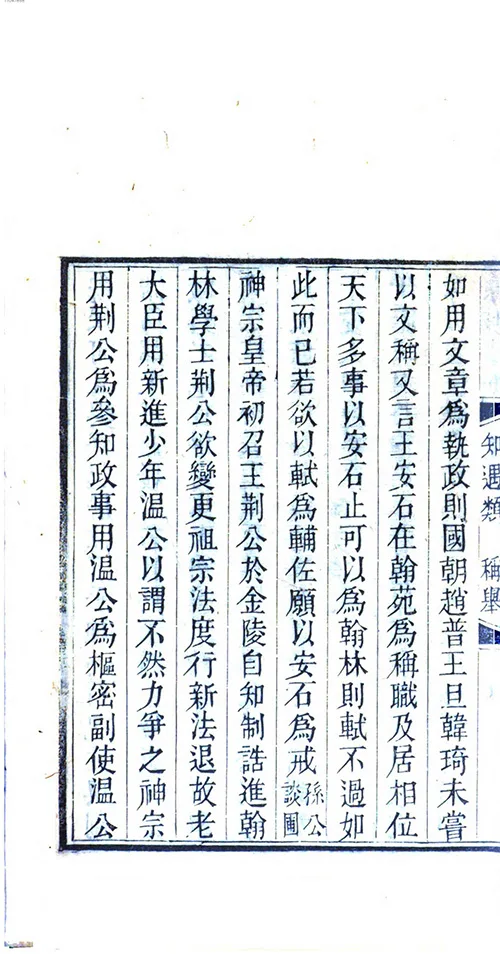 知遇類　稱舉
如用文章為執政則國朝趙普王旦韓琦未嘗
以文稱又言王安石在翰苑為稱職及居相位
天下多事以安石止可以為翰林則軾不過如
此而已若欲以軾為輔佐願以安石為戒孫公談圃
神宗皇帝初召王荆公於金陵自知制誥進翰
林學士荆公欲變更祖宗法度行新法退故老
大臣用新進少年溫公以謂不然力爭之神宗
用荆公為參知政事用溫公為樞密副使溫公